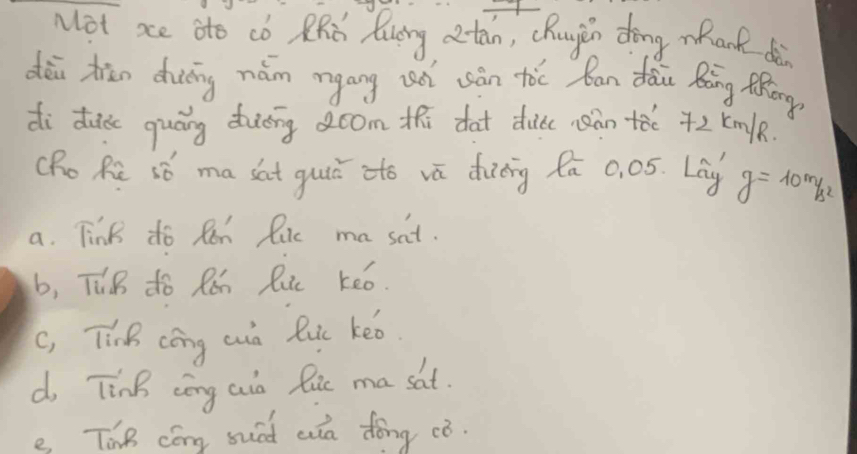 Một xe ôtô có khối lượng 2 tấn, chuyển động nhanh dần
đều trên đường nằm ngang với vận tốc ban đầu bằng không,
đi được quãng đường 200m thì đạt được vận tốc 72 km/h.
Cho hệ số ma sát giữa ôtô và đường là 0,05. Lấy g = 10m/s²
a. Tính độ lớn lực ma sát.
b, Tính độ lớn lực kéo.
c, Tính công của lực kéo.
d, Tính công của lực ma sát.
e, Tính công suất của động cơ.